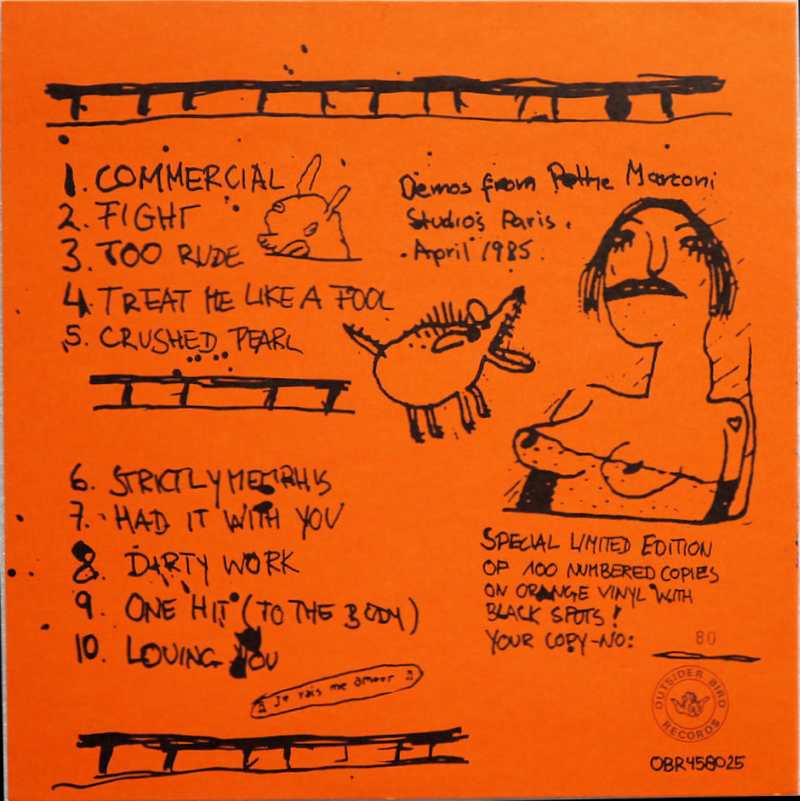 1. COMMERCIAL
2. FIGHT
3. TOO RUDE
4. TREAT ME LIKE A FOOL
5. CRUSHED PEARL
Demos from Pathe Marconi
Studios Paris.
April 1985.
6. STRICTLY MEMPHIS
7. HAD IT WITH YOU
8. DIRTY WORK
9. ONE HIT (TO THE BODY)
10. LOVING YOU
Je vais me amour
SPECIAL LIMITED EDITION
OF 100 NUMBERED COPIES
ON ORANGE VINYL WITH
BLACK SPOTS!
YOUR COPY-NO: 80
OUTSIDER BIRD
RECORDS
OBR458025